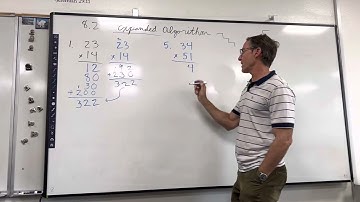 8.2 Expanded Algorithm
1. 23
× 14
12
80
30
+ 200
322
23
× 14
92
+ 230
322
5. 34
× 51
4